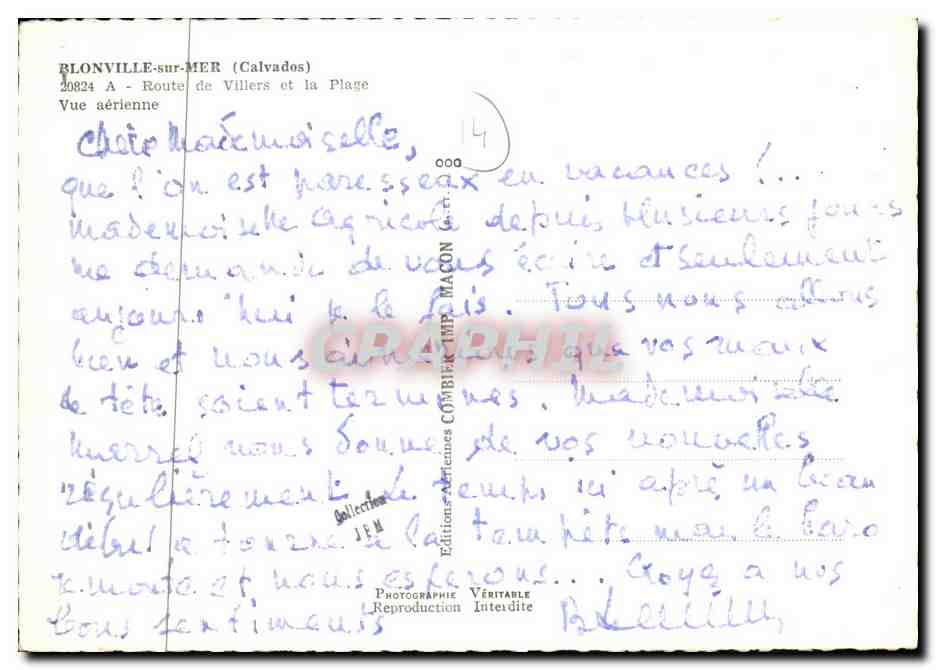 BLONVILLE-sur-MER (Calvados)
20824 A - Route de Villers et la Plage
Vue aérienne
14
Chère Mademoiselle,
que l'on est paresseux en vacances !...
Mademoiselle Agricole depuis plusieurs jours
me demande de vous écrire et seulement
aujourd'hui je le fais. Tous nous allons
bien et nous aimerions que vos maux
de tête soient terminés. Mademoiselle
nous donne de vos nouvelles
régulièrement. Le temps ici après un beau
début a tourné à la tempête mais le baro
remonte et nous espérons... Croyez à nos
bons sentiments
Editions Aériennes COMBIER IMP. MACON (S.-et-L.)
CRAPHIL
Collection
JFM
PHOTOGRAPHIE VÉRITABLE
Reproduction Interdite